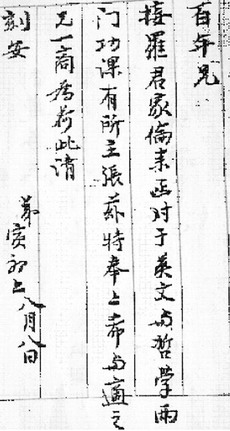 百年兄
接羅君家倫来函对于英文与哲学两
门功课有所主張茲特奉上希与適之
兄一商为荷此请
刻安
弟寅初上八月八日